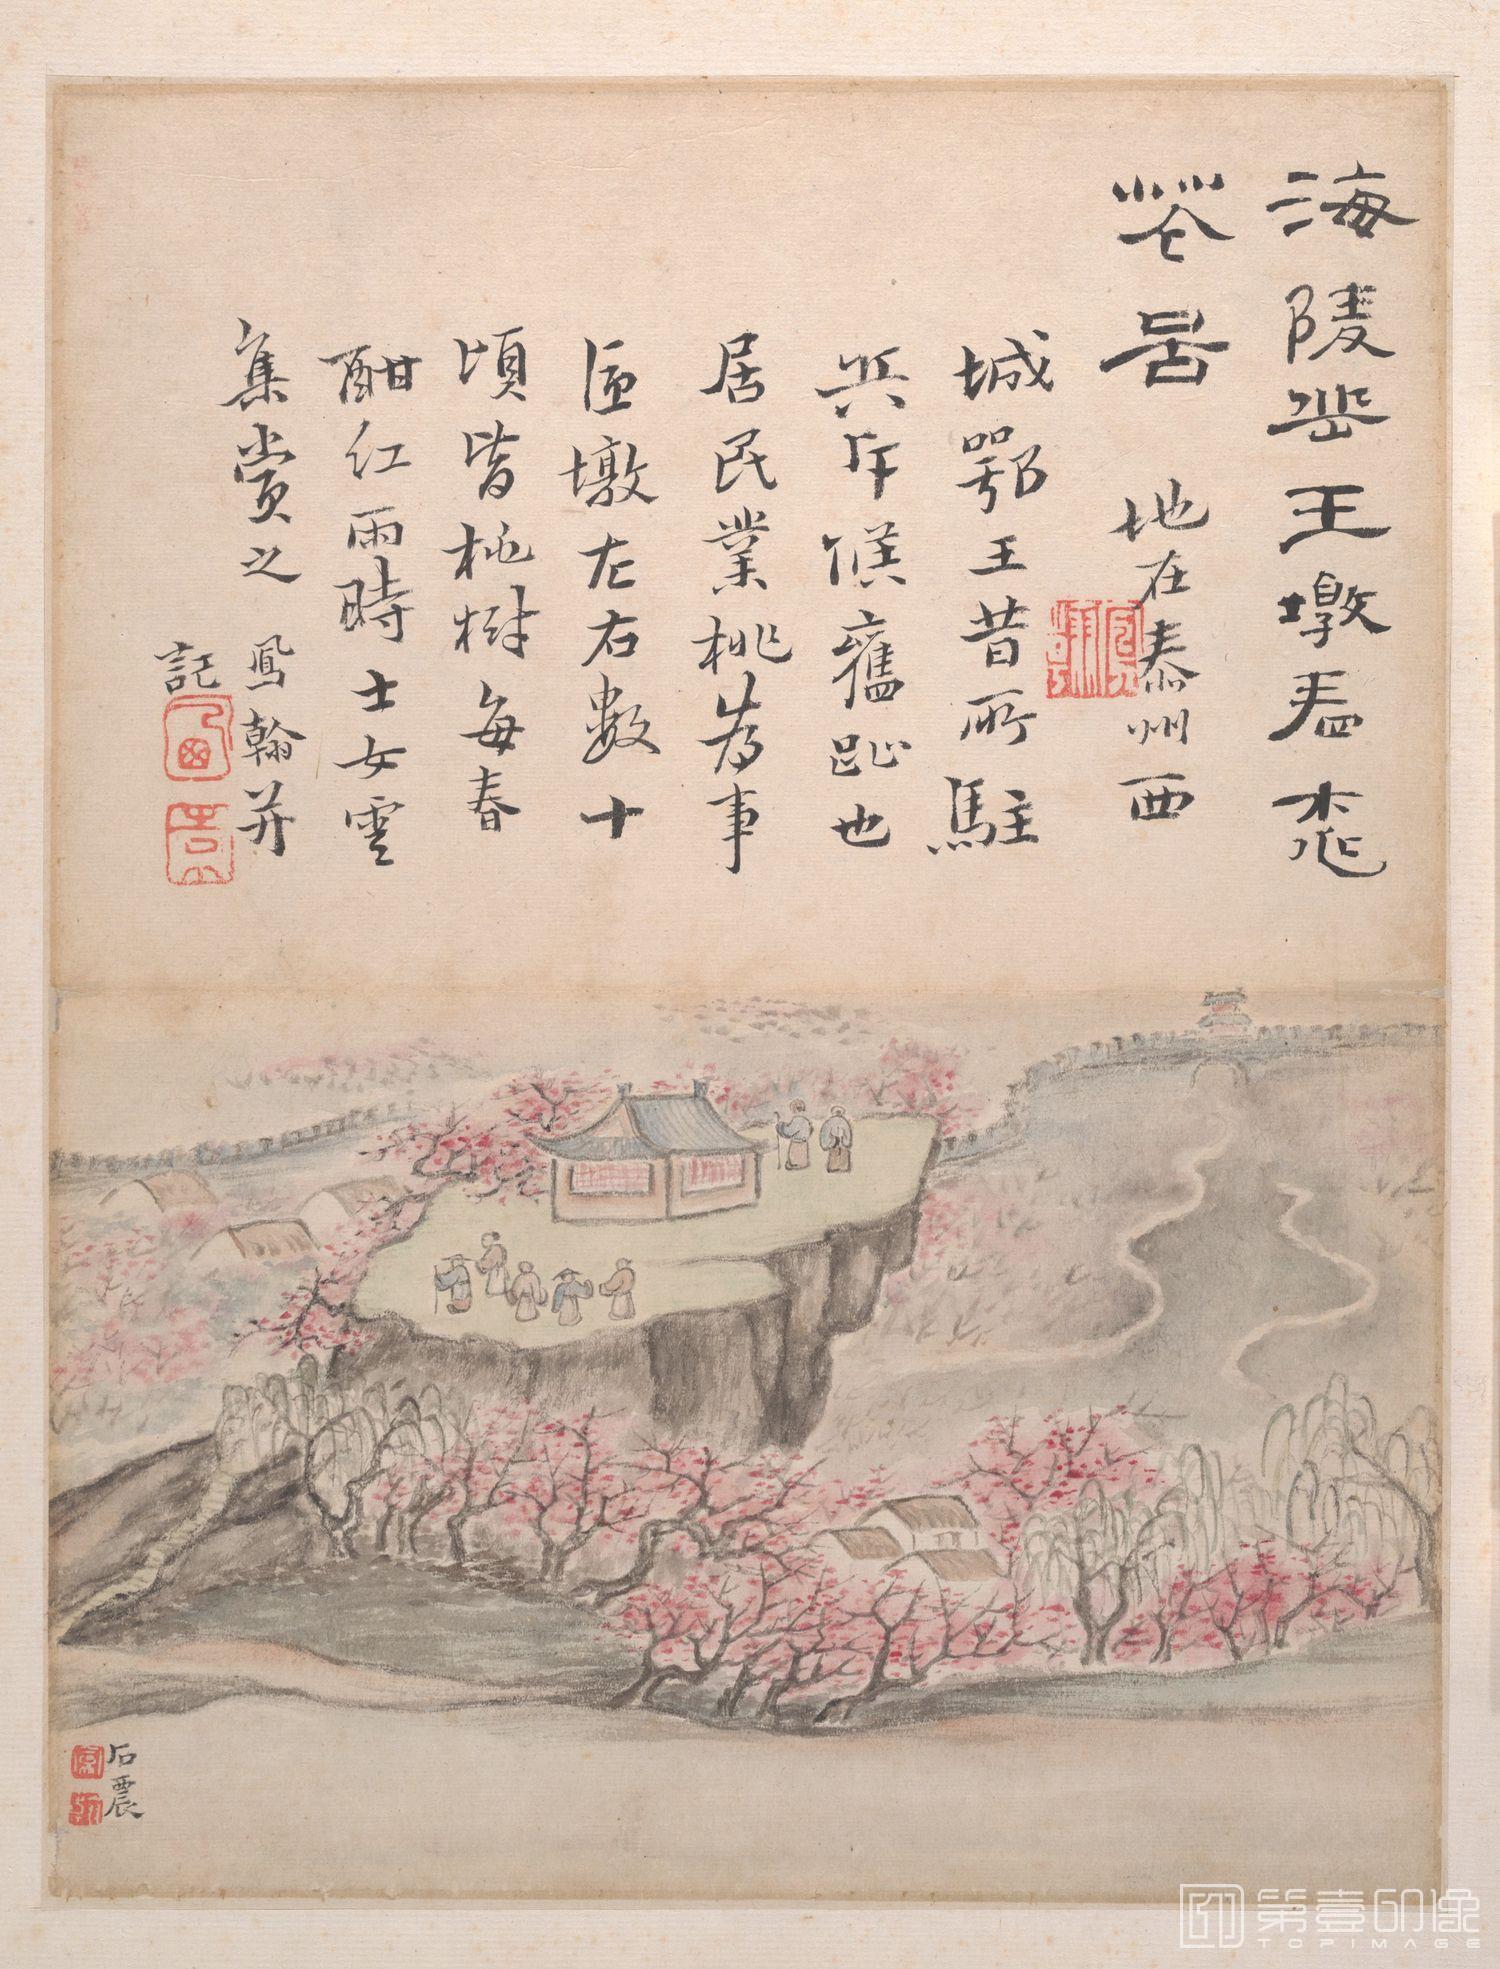 海陵岳王墩看桃
花图 地在泰州西
城鄂王昔所駐
兵斥候舊趾也
居民業桃為事
匝墩左右數十
頃皆桃樹每春
酣紅雨時士女雲
集賞之 鳳翰并
記
石農
第壹印像
TOPIMAGE